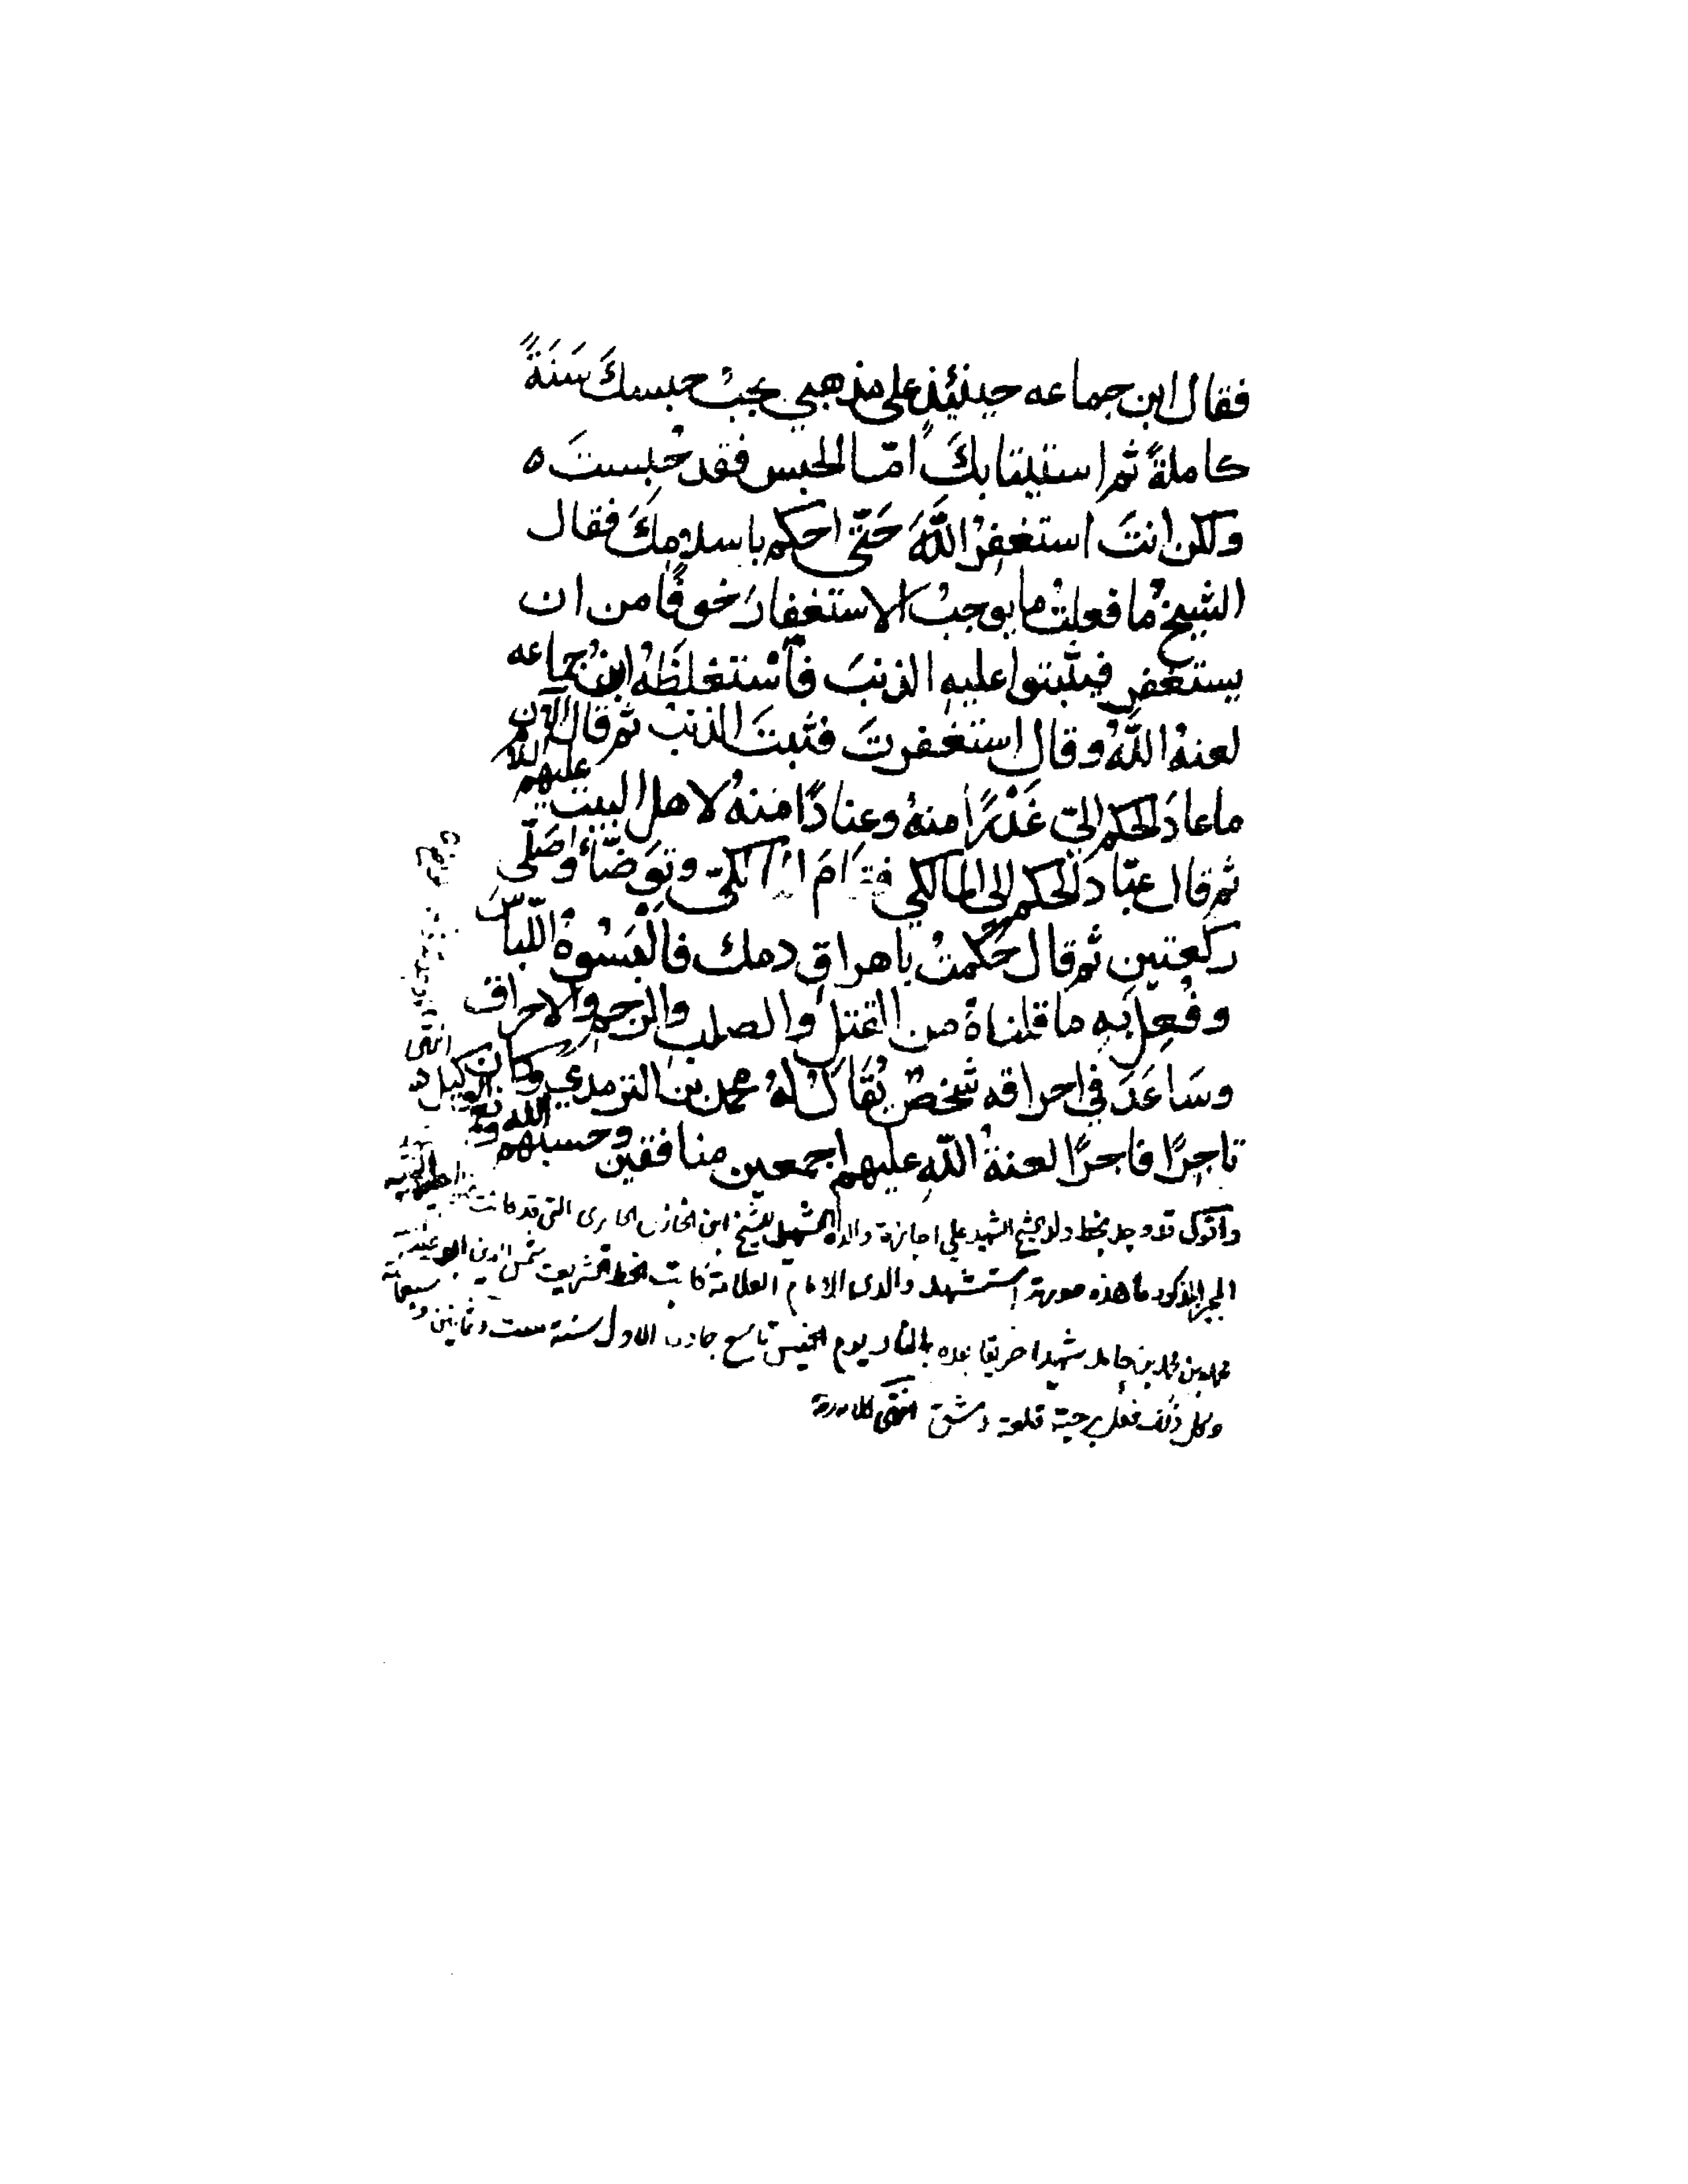 فقال ابن جماعه حينئذٍ على مذهبي يجبُ حبسكَ سَنَةً
كاملةً ثم استيتابكَ امّا الحبس فقد حُبِستَ ه
ولكن انتَ استغفِرُ اللَّهَ حَتّى احكم باسلامِكَ فقال
الشيخُ ما فعلتُ ما يوجبُ الاستغفارَ خوفًا من ان
يستغفر فيثبتوا عليهِ الذنبَ فاَسْتغلظَهُ ابنُ جماعه
لعنهُ اللَّهُ وقال استغفرتَ فثبتَ الذنبُ ثم قال الآن
ما عادَ الحكم اليّ غَدْرًا منهُ وعنادًا منهُ لاهل البيت عليهم
ثم قال عبّاد الحكم الى المالكي فقامَ المالكيّ وتوَضّاءَ وصَلّى
ركعتين ثم قال حَكَمتُ باهراقِ دمك فالبَسُوهُ اللّباسَ
وفُعِل بهِ ما قلناهُ من القتل والصلبِ والرجم والاحراق
وسَاعَدَ في احراقه شخصٌ يُقالُ لهُ محمد بن الترمذي وكان
تاجرًا فاجرًا لعنةُ اللّهِ عليهم اجمعين منافقين وحسبهم الله ونعم الوكيل
انتهى
قد وجد بخط ولد الشيخ الشهيد علي اجازة والده الشهيد للشيخ ابن الخازن الحايرى التي قد كانت
المذكور ما هذه صورته استشهد والدي الامام العلامة كاتب الخط الشريف شمس الدين ابو عبد
محمد بن محمد بن حامد شهيدا حريقا بعده بالنار يوم الخميس تاسع جمادى الاول سنة ست وثمانين وسبعمائة
وكل ذلك فعل برحبة قلعة دمشق انتهى كلامه